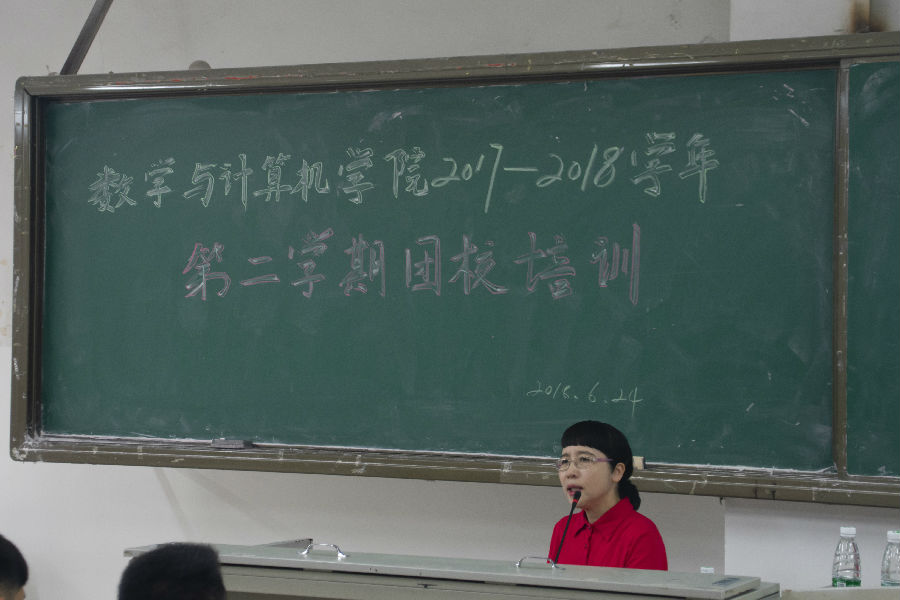 数学与计算机学院2017—2018学年
第二学期团校培训
2018.6.24